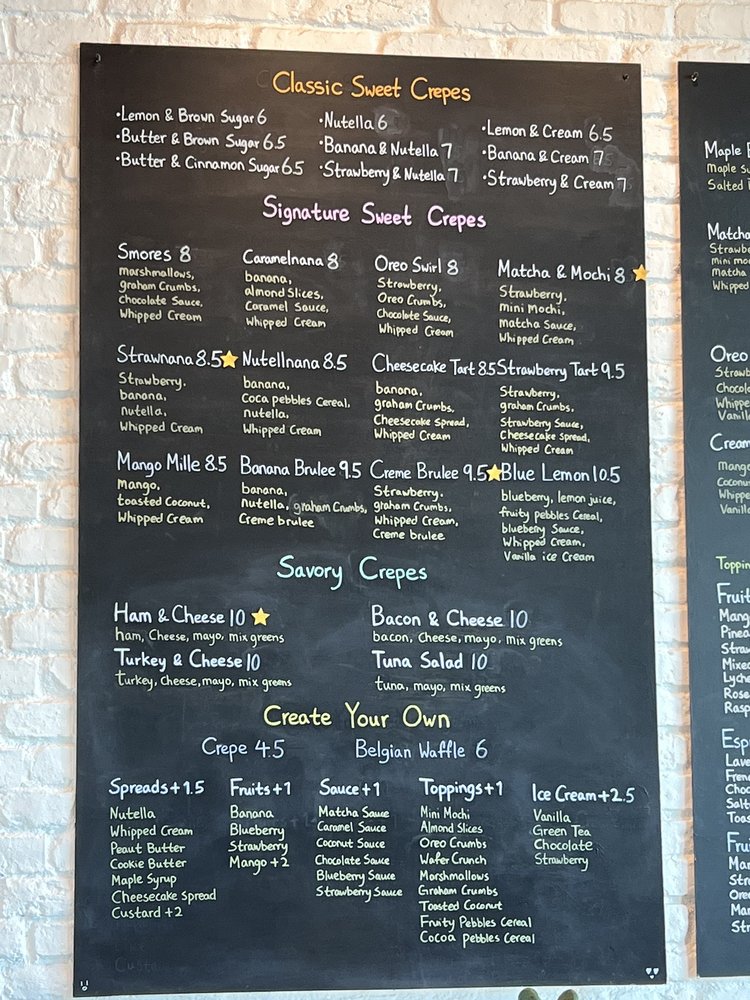 Classic Sweet Crepes
•Lemon & Brown Sugar 6
•Butter & Brown Sugar 6.5
•Butter & Cinnamon Sugar 6.5
•Nutella 6
•Banana & Nutella 7
•Strawberry & Nutella 7
•Lemon & Cream 6.5
•Banana & Cream 7
•Strawberry & Cream 7
Signature Sweet Crepes
Smores 8
marshmallows,
graham Crumbs,
Chocolate Sauce,
Whipped Cream
Caramelnana 8
banana,
almond Slices,
Caramel Sauce,
Whipped Cream
Oreo Swirl 8
Strawberry,
Oreo Crumbs,
Chocolate Sauce,
Whipped Cream
Matcha & Mochi 8
Strawberry,
mini mochi,
matcha Sauce,
Whipped Cream
Strawnana 8.5
Strawberry,
banana,
nutella,
Whipped Cream
Nutellnana 8.5
banana,
Coca pebbles Cereal,
nutella,
Whipped Cream
Cheesecake Tart 8.5
banana,
graham Crumbs,
Cheesecake Spread,
Whipped Cream
Strawberry Tart 9.5
Strawberry,
graham Crumbs,
Strawberry Sauce,
Cheesecake Spread,
Whipped Cream
Mango Mille 8.5
Mango,
toasted Coconut,
Whipped Cream
Banana Brulee 9.5
banana,
nutella, graham Crumbs,
Creme brulee
Creme Brulee 9.5
Strawberry,
graham Crumbs,
Whipped Cream,
Creme brulee
Blue Lemon 10.5
blueberry, lemon juice,
fruity pebbles Cereal,
blueberry Sauce,
Whipped Cream,
Vanilla ice Cream
Savory Crepes
Ham & Cheese 10
ham, Cheese, mayo, mix greens
Turkey & Cheese 10
turkey, cheese, mayo, mix greens
Bacon & Cheese 10
bacon, cheese, mayo, mix greens
Tuna Salad 10
tuna, mayo, mix greens
Create Your Own
Crepe 4.5
Belgian Waffle 6
Spreads +1.5
Nutella
Whipped Cream
Peanut Butter
Cookie Butter
Maple Syrup
Cheesecake Spread
Custard +2
Fruits +1
Banana
Blueberry
Strawberry
Mango +2
Sauce +1
Matcha Sauce
Caramel Sauce
Coconut Sauce
Chocolate Sauce
Blueberry Sauce
Strawberry Sauce
Toppings +1
Mini Mochi
Almond Slices
Oreo Crumbs
Wafer Crunch
Marshmallows
Graham Crumbs
Toasted Coconut
Fruity Pebbles Cereal
Cocoa pebbles Cereal
Ice Cream +2.5
Vanilla
Green Tea
Chocolate
Strawberry
Maple
Maple
Salted
Matcha
mini
matcha
Whipped
Oreo
Vanill
Cream
Mango
Vanill